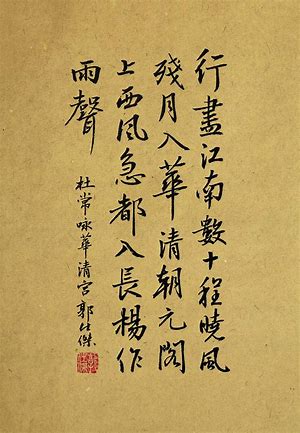 行盡江南數十程曉風
殘月入華清朝元閣
上西風急都入長楊作
雨聲
杜常咏華清宮郭仕傑